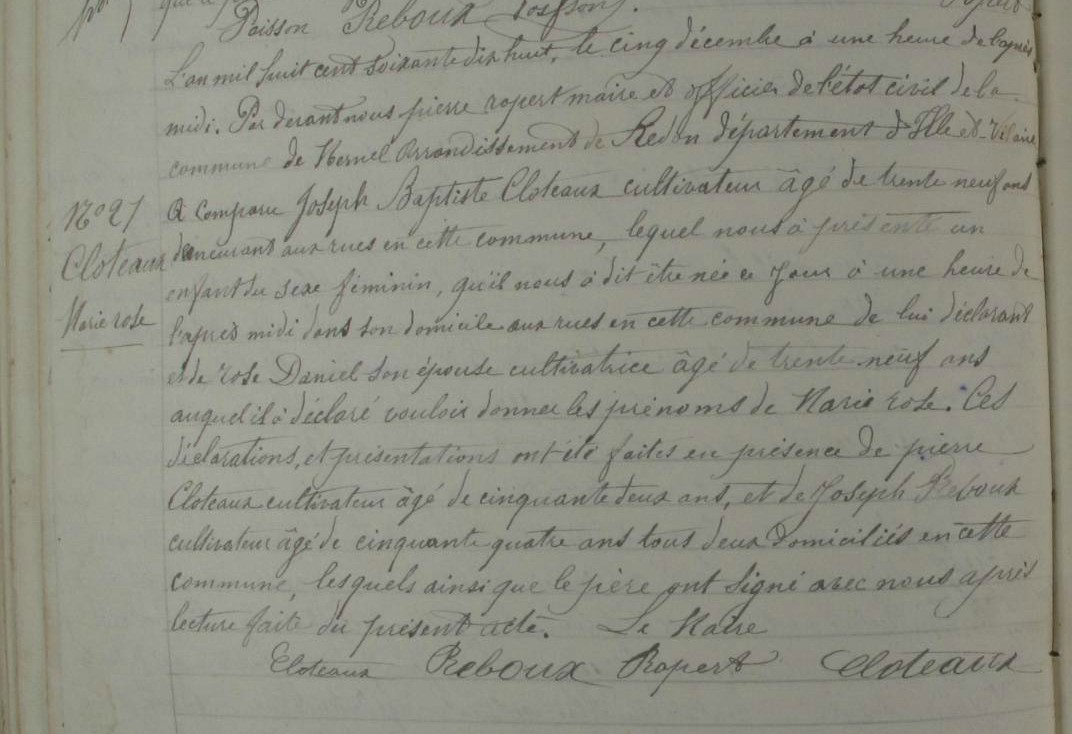 Poisson Reboux Poisson.
L'an mil huit cent soixante dix huit, le cinq décembre à une heure de l'après
midi. Par devant nous pierre ropert maire et officier de l'état civil de la
commune de Mernel Arrondissement de Redon département d'Ille et Vilaine
A comparu Joseph Baptiste Cloteaux cultivateur âgé de trente neuf ans
demeurant aux rues en cette commune, lequel nous à présenté un
enfant du sexe féminin, qu'il nous à dit être née ce jour à une heure de
l'après midi dans son domicile aux rues en cette commune de lui déclarant
et de rose Daniel son épouse cultivatrice âgé de trente neuf ans
auquel il à déclaré vouloir donner les prénoms de Marie rose. Ces
déclarations, et présentations ont été faites en présence de pierre
Cloteaux cultivateur âgé de cinquante deux ans, et de Joseph Reboux
cultivateur âgé de cinquante quatre ans tous deux domiciliés en cette
commune, lesquels ainsi que le père ont signé avec nous après
lecture faite du présent acte. Le Maire
Cloteaux Reboux Ropert Cloteaux
N° 21
Cloteaux
Marie rose